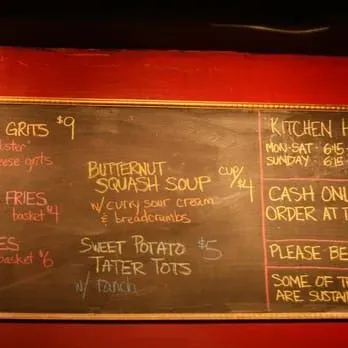 GRITS $9
ese grits
FRIES
basket $4
ES
basket $6
BUTTERNUT
SQUASH SOUP cup/$4
w/ curry sour cream
& breadcrumbs
SWEET POTATO $5
TATER TOTS
w/ ranch
KITCHEN H
MON-SAT 6:15
SUNDAY 6:15
CASH ONL
ORDER AT T
PLEASE BE
SOME OF TH
ARE SUSTAI